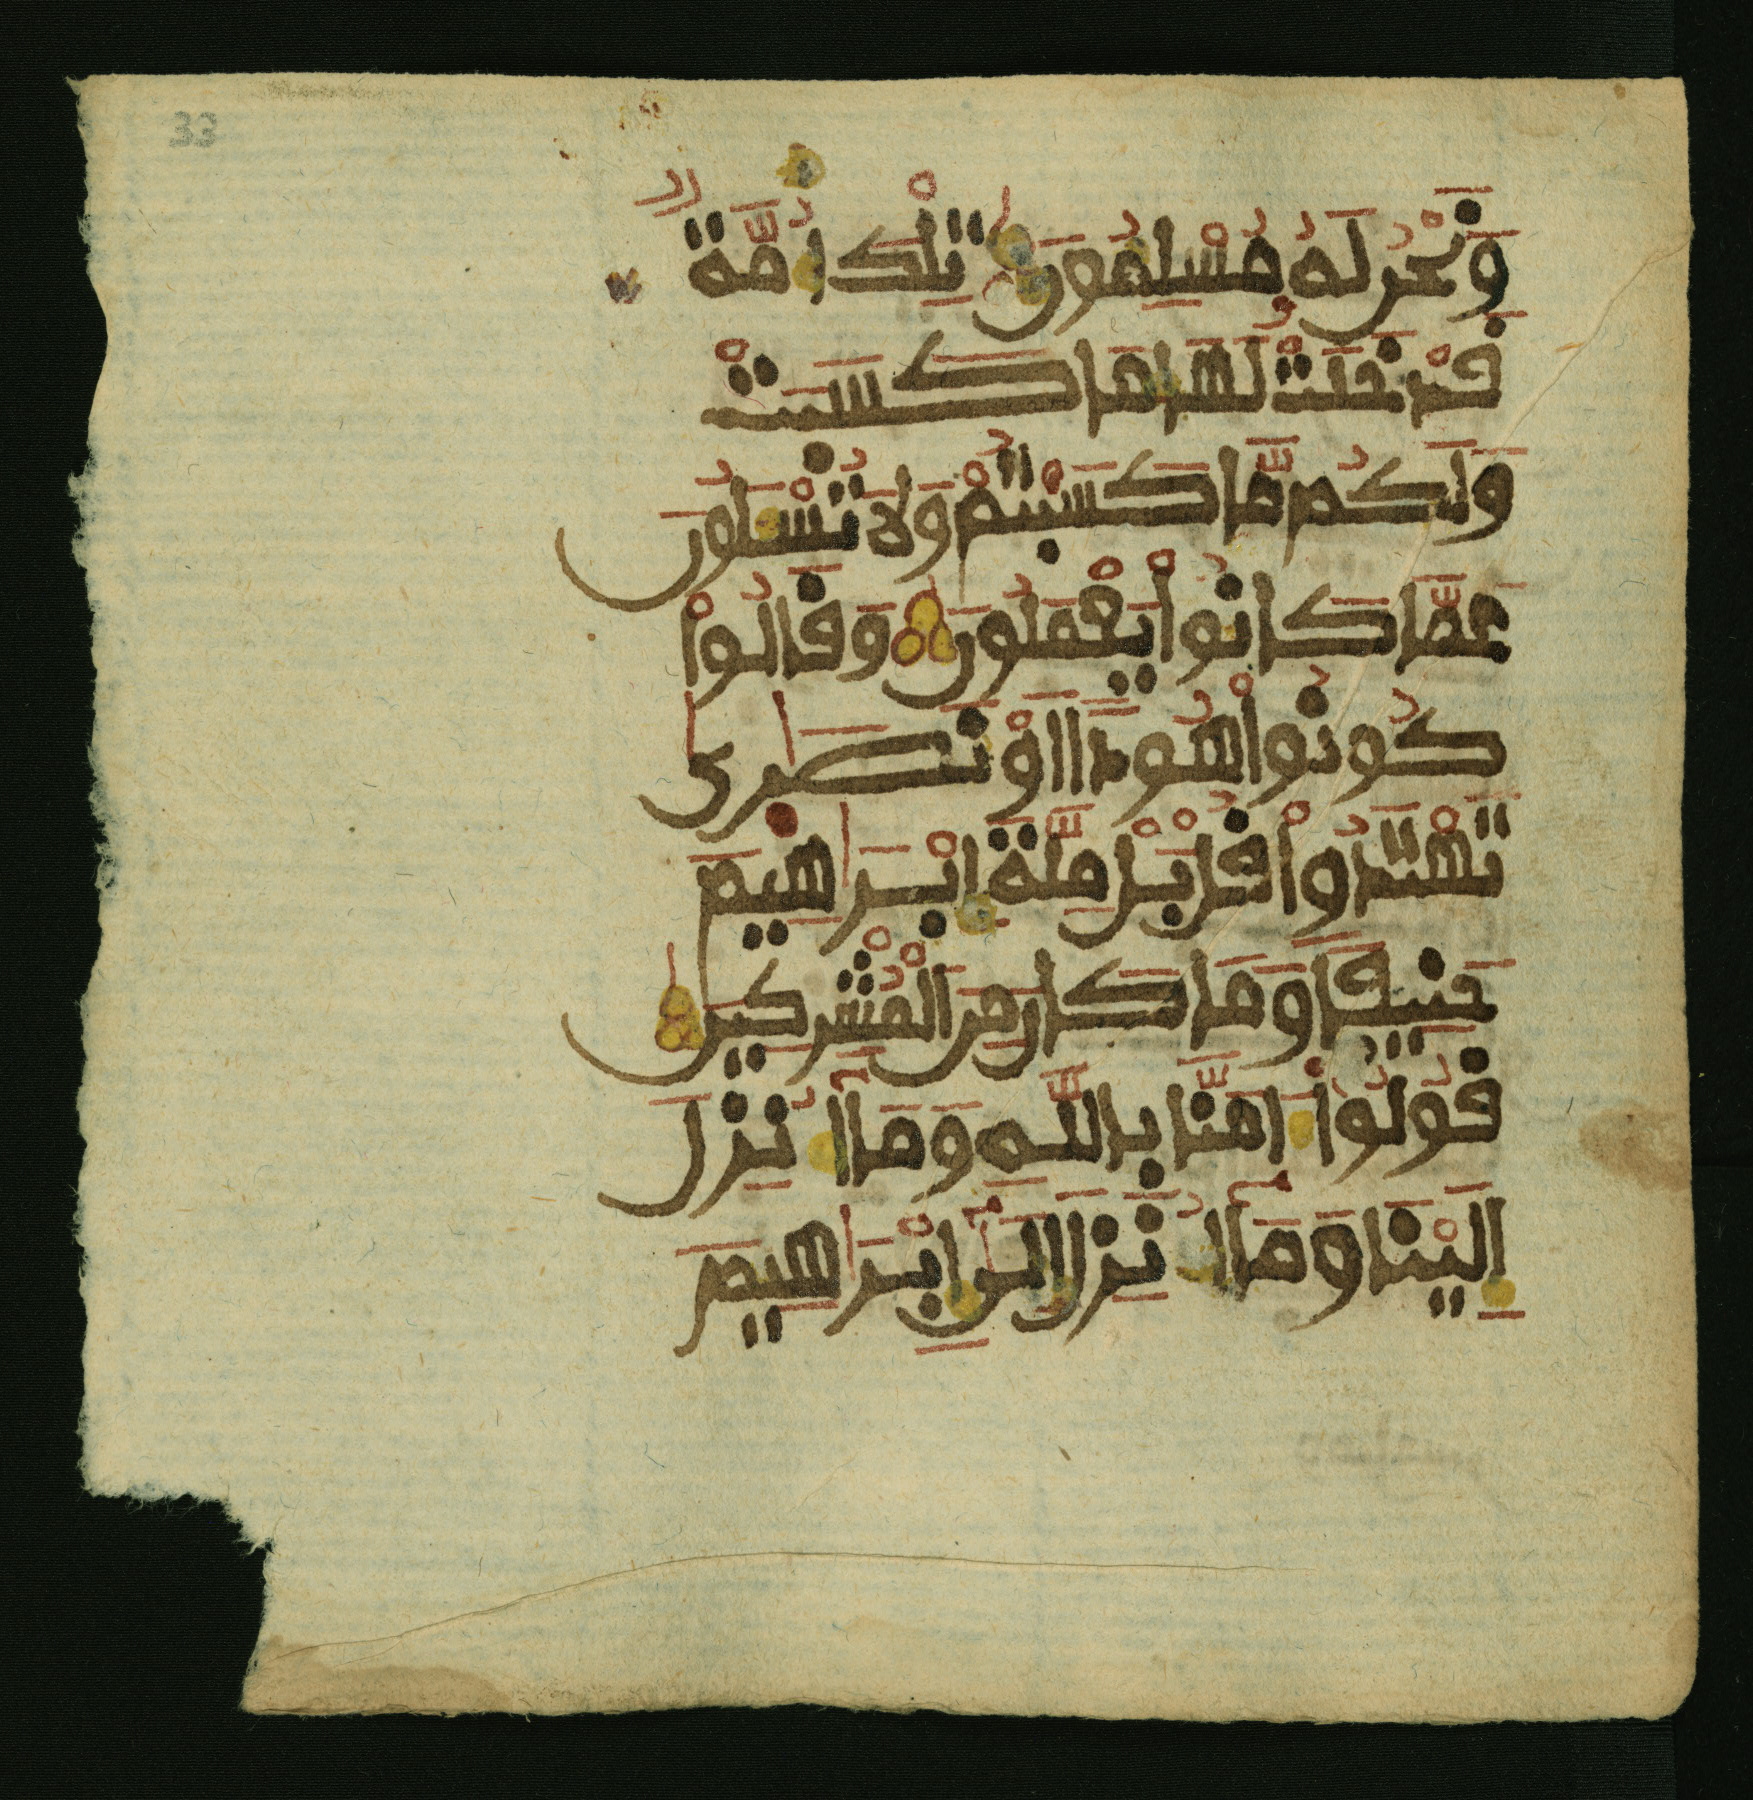 33
وَنَحْنُ لَهُ مُسْلِمُونَ تِلْكَ أُمَّةٌ
قَدْ خَلَتْ لَهَا مَا كَسَبَتْ
وَلَكُم مَّا كَسَبْتُمْ وَلَا تُسْـَٔلُونَ
عَمَّا كَانُواْ يَعْمَلُونَ وَقَالُواْ
كُونُواْ هُودًا اَوْ نَصَٰرَىٰ
تَهْتَدُواْ قُلْ بَلْ مِلَّةَ إِبْرَٰهِيمَ
حَنِيفًا وَمَا كَانَ مِنَ الْمُشْرِكِينَ
قُولُواْ ءَامَنَّا بِاللَّهِ وَمَآ أُنزِلَ
إِلَيْنَا وَمَآ أُنزِلَ إِلَىٰٓ إِبْرَٰهِيمَ